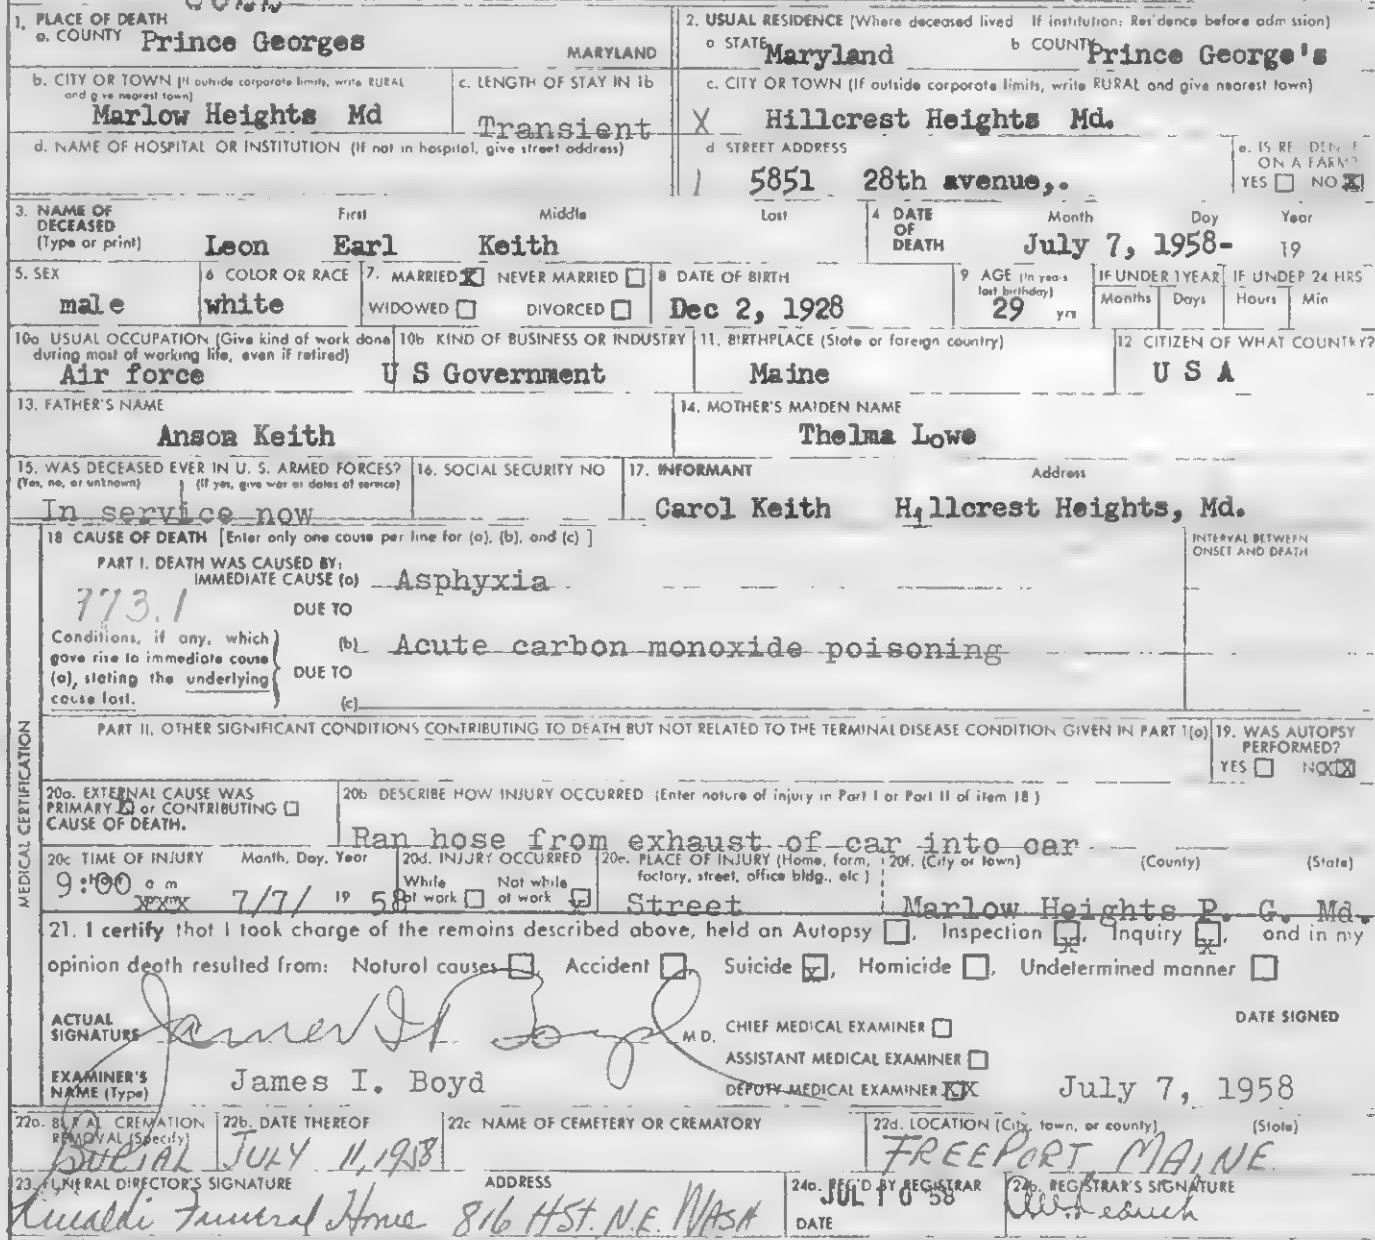 1. PLACE OF DEATH
a. COUNTY Prince Georges MARYLAND
2. USUAL RESIDENCE (Where deceased lived If institution: Residence before admission)
a STATE Maryland b COUNTY Prince George's
b. CITY OR TOWN (If outside corporate limits, write RURAL and give nearest town)
Marlow Heights Md
c. LENGTH OF STAY IN 1b
Transient
c. CITY OR TOWN (If outside corporate limits, write RURAL and give nearest town)
X Hillcrest Heights Md.
d. NAME OF HOSPITAL OR INSTITUTION (If not in hospital, give street address)
d STREET ADDRESS
5851 28th avenue,.
e. IS RESIDENCE ON A FARM?
YES NO X
3. NAME OF DECEASED (Type or print)
First Middle Last
Leon Earl Keith
4 DATE OF DEATH
Month Day Year
July 7, 1958- 19
5. SEX
male
6 COLOR OR RACE
white
7. MARRIED X NEVER MARRIED
WIDOWED DIVORCED
8 DATE OF BIRTH
Dec 2, 1928
9 AGE (In years last birthday)
29 yrs
IF UNDER 1 YEAR
Months Days
IF UNDER 24 HRS
Hours Min
10a USUAL OCCUPATION (Give kind of work done during most of working life, even if retired)
Air force
10b KIND OF BUSINESS OR INDUSTRY
U S Government
11. BIRTHPLACE (State or foreign country)
Maine
12 CITIZEN OF WHAT COUNTRY?
U S A
13. FATHER'S NAME
Anson Keith
14. MOTHER'S MAIDEN NAME
Thelma Lowe
15. WAS DECEASED EVER IN U. S. ARMED FORCES?
(Yes, no, or unknown) (If yes, give war or dates of service)
In service now
16. SOCIAL SECURITY NO
17. INFORMANT Address
Carol Keith Hillcrest Heights, Md.
MEDICAL CERTIFICATION
18 CAUSE OF DEATH [Enter only one cause per line for (a), (b), and (c) ]
INTERVAL BETWEEN ONSET AND DEATH
PART I. DEATH WAS CAUSED BY:
IMMEDIATE CAUSE (a) Asphyxia
973.1
DUE TO
Conditions, if any, which gave rise to immediate cause (a), stating the underlying cause last.
(b) Acute carbon monoxide poisoning
DUE TO
(c)
PART II. OTHER SIGNIFICANT CONDITIONS CONTRIBUTING TO DEATH BUT NOT RELATED TO THE TERMINAL DISEASE CONDITION GIVEN IN PART I(a)
19. WAS AUTOPSY PERFORMED?
YES NO XX
20a. EXTERNAL CAUSE WAS PRIMARY X or CONTRIBUTING CAUSE OF DEATH.
20b DESCRIBE HOW INJURY OCCURRED (Enter nature of injury in Part I or Part II of item 18 )
Ran hose from exhaust of car into car
20c TIME OF INJURY Month, Day, Year
9:00 a m 7/7/ 19 58
20d. INJURY OCCURRED
While at work Not while at work X
20e. PLACE OF INJURY (Home, farm, factory, street, office bldg., etc )
Street
20f. (City or town) (County) (State)
Marlow Heights P. G. Md.
21. I certify that I took charge of the remains described above, held an Autopsy , Inspection x, Inquiry x, and in my
opinion death resulted from: Natural causes , Accident , Suicide x, Homicide , Undetermined manner
ACTUAL SIGNATURE James I Boyd M D.
CHIEF MEDICAL EXAMINER
ASSISTANT MEDICAL EXAMINER
DEPUTY MEDICAL EXAMINER XX
DATE SIGNED
July 7, 1958
EXAMINER'S NAME (Type) James I. Boyd
22a. BURIAL CREMATION REMOVAL (Specify)
BURIAL
22b. DATE THEREOF
JULY 11, 1958
22c NAME OF CEMETERY OR CREMATORY
22d. LOCATION (City, town, or county) (State)
FREEPORT, MAINE
23. FUNERAL DIRECTOR'S SIGNATURE ADDRESS
Rinaldi Funeral Home 816 H St. N.E. WASH
24a. REC'D BY REGISTRAR
DATE JUL 10 58
24b. REGISTRAR'S SIGNATURE